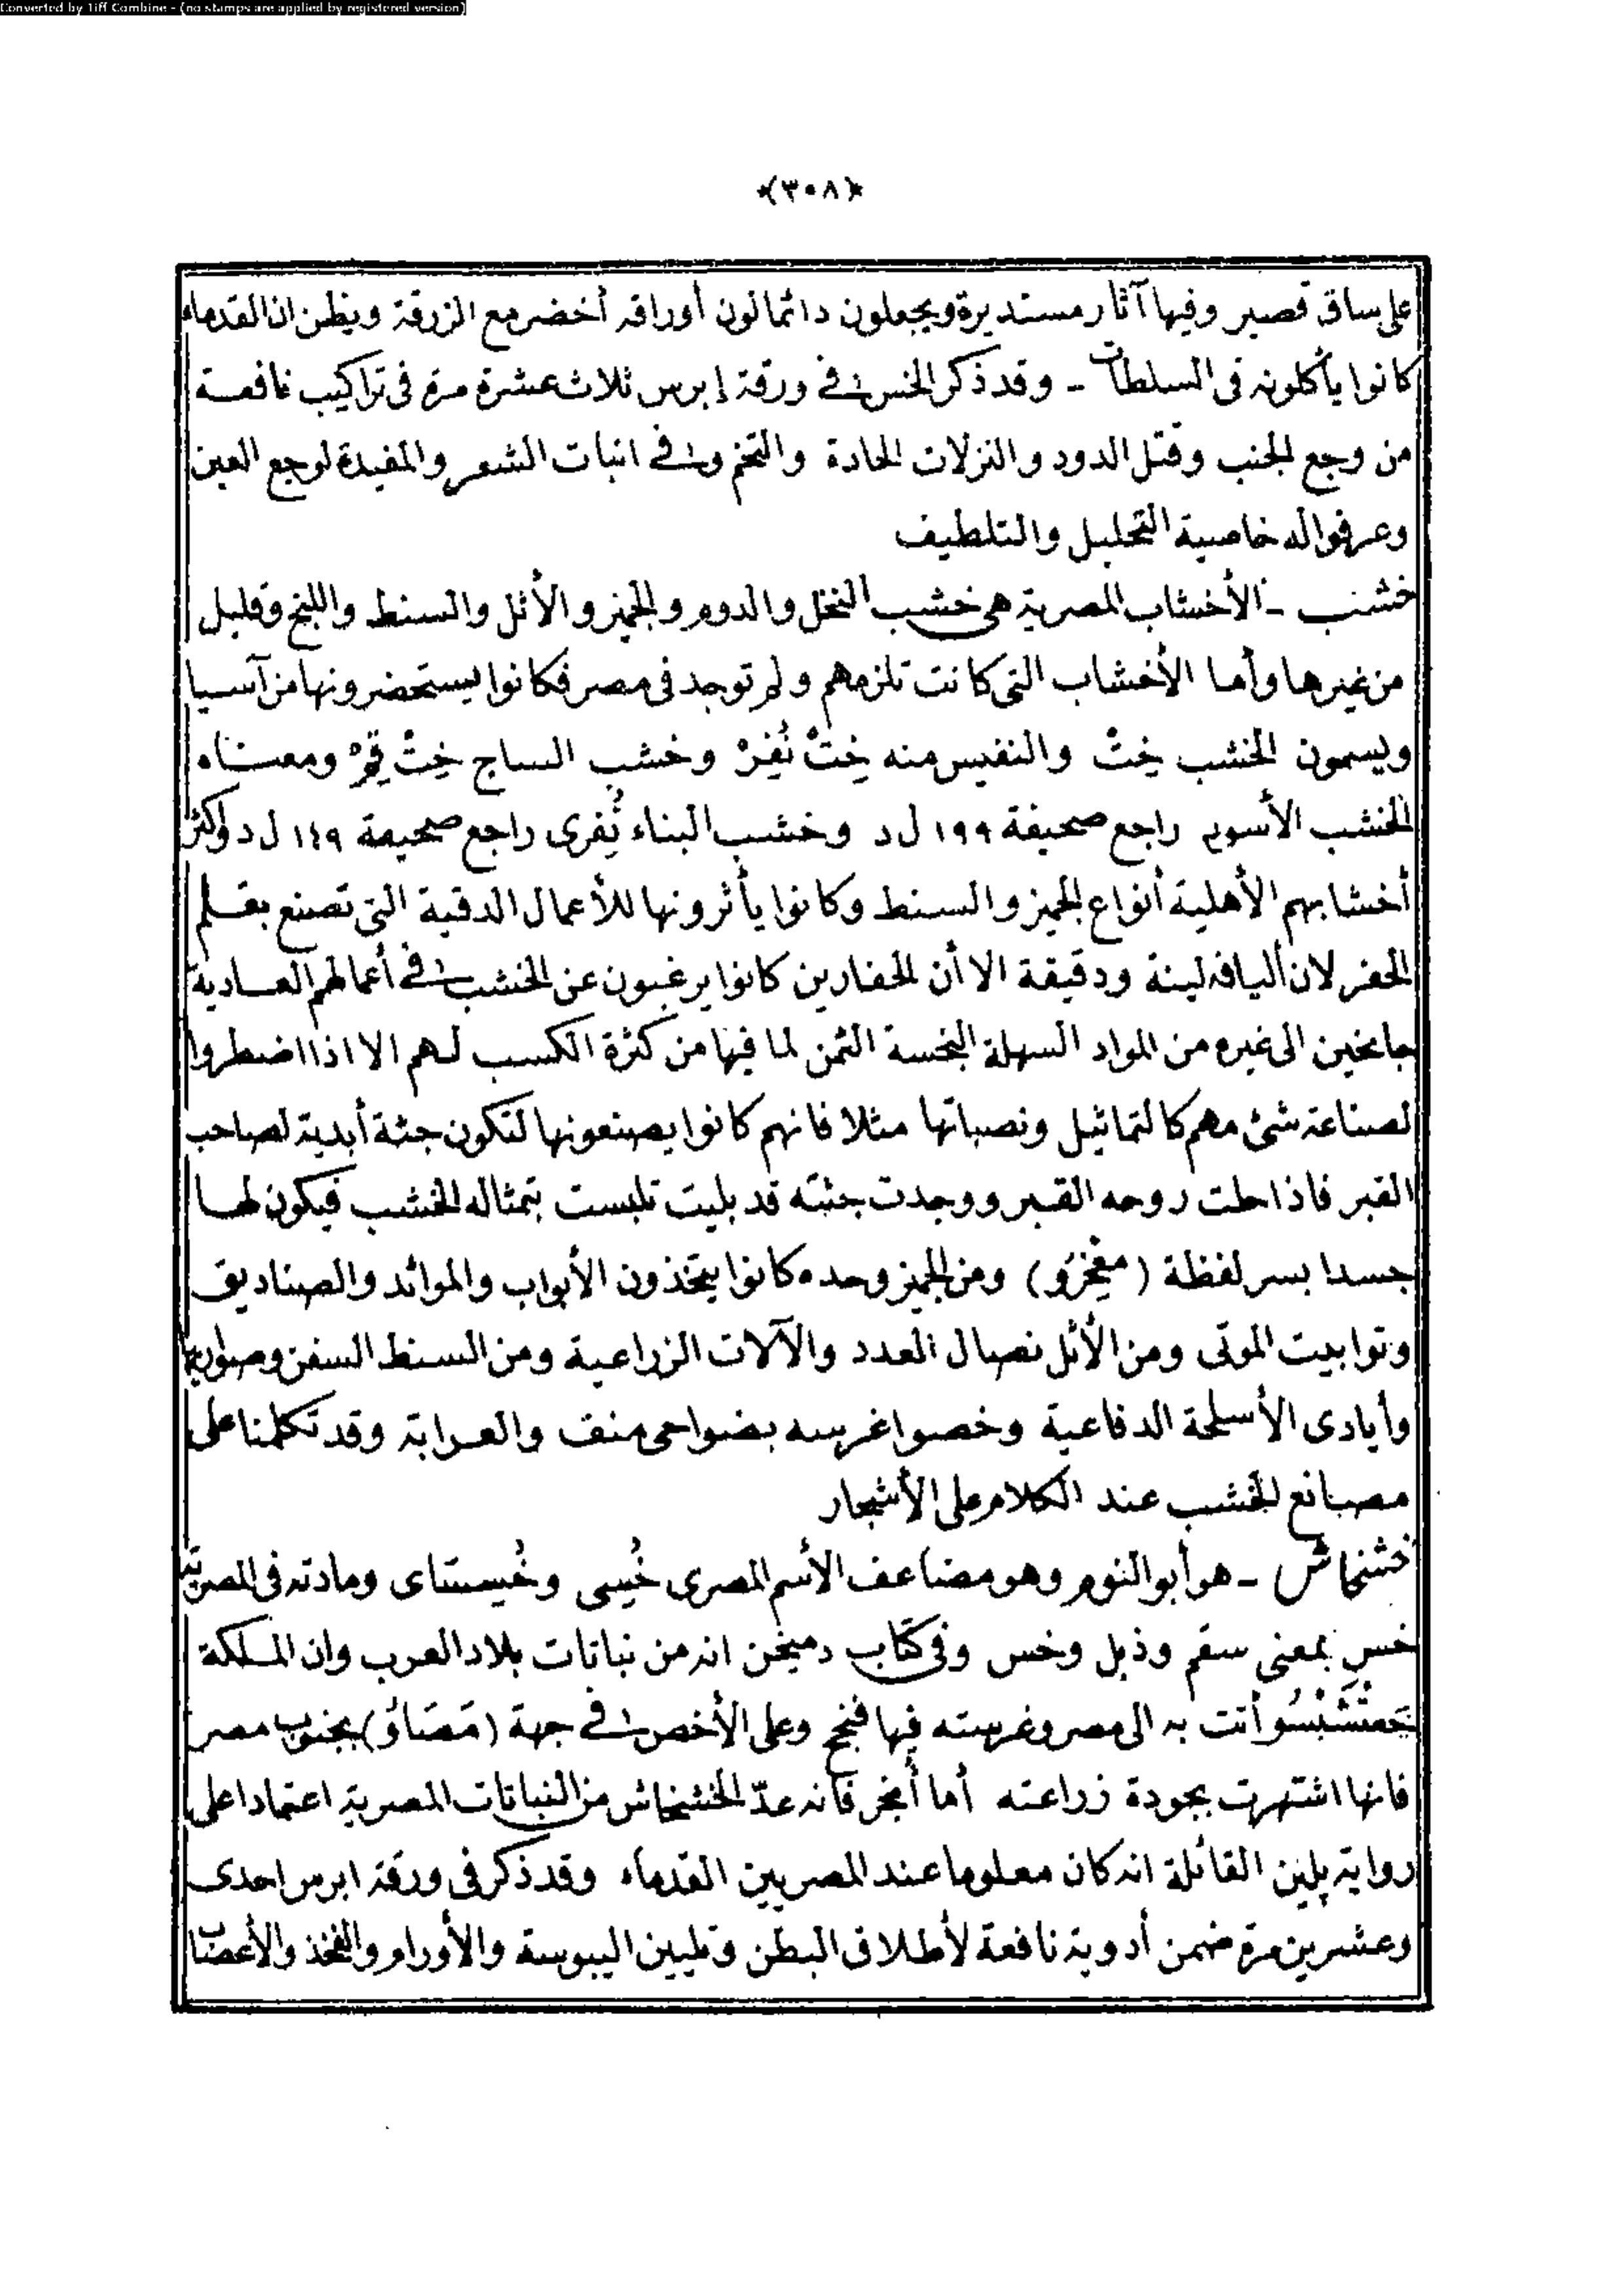 Converted by Tiff Combine - (no stamps are applied by registered version)
﴿٣٠٨﴾
على ساق قصير وفيها آثار مستديرة ويجعلون دائما لون أوراقه أخضر مع الزرقة ويظن ان القدماء
كانوا يأكلونه فى السلطات - وقد ذكر الخس فى ورقة إبرس ثلاث عشرة مرة فى تراكيب نافعة
من وجع الجنب وقتل الدود والنزلات الحادة والتخم وفى انبات الشعر والمفيدة لوجع العين
وعرفوا له خاصية التحليل والتلطيف
خشب - الأخشاب المصرية هى خشب النخل والدوم والجميز والأثل والسنط واللبخ وقليل
من غيرها وأما الأخشاب التى كانت تلزمهم ولم توجد فى مصر فكانوا يستحضرونها من آسيا
ويسمون الخشب خِتْ والنفيس منه خِتْ نُفِرْ وخشب الساج خِتْ قِمْ ومعناه
الخشب الأسود راجع صحيفة ١٩٩ ل د وخشب البناء نُفِرى راجع صحيفة ١٤٩ ل د وأكثر
أخشابهم الأهلية أنواع الجميز والسنط وكانوا يأثرونها للأعمال الدقية التى تصنع بقلم
الحفر لان أليافه لينة ودقيقة الا أن الحفارين كانوا يرغبون عن الخشب فى أعمالهم العادية
جانحين الى غيره من المواد السهلة البخسة الثمن لما فيها من كثرة الكسب لهم الا اذا اضطروا
لصناعة شئ مهم كالتماثيل ونصباتها مثلا فانهم كانوا يصنعونها لتكون جثة أبدية لصاحب
القبر فاذا حلت روحه القبر ووجدت جثته قد بليت تلبست بتمثاله الخشب فيكون لها
جسدا بسر لفظة (مَعْخِرُو) ومن الجميز وحده كانوا يتخذون الأبواب والموائد والصناديق
وتوابيت الموتى ومن الأثل نصال العدد والآلات الزراعية ومن السنط السفن وصواريها
وأيادى الأسلحة الدفاعية وخصوا غرسه بضواحى منف والعرابة وقد تكلمنا على
مصانع الخشب عند الكلام على الأشجار
خشخاش - هو أبو النوم وهو مضاعف الأسم المصرى خُسِى وخُيستاى ومادته فى المصرية
خس بمعنى سقم وذبل وخس وفى كتاب دميخن انه من نباتات بلاد العرب وان الملكة
حَعتْشَبْسُو أتت به الى مصر وغرسته فيها فنجح وعلى الأخص فى جهة (مَصَاوُ) بجنوب مصر
فانها اشتهرت بجودة زراعته أما أنجر فانه عدّ الخشخاش من النباتات المصرية اعتمادا على
رواية پلين القائلة انه كان معلوما عند المصريين القدماء وقد ذكر فى ورقة ابرس احدى
وعشرين مرة ضمن أدوية نافعة لأطلاق البطن وتليين اليبوسة والأورام والفخذ والأعصاب